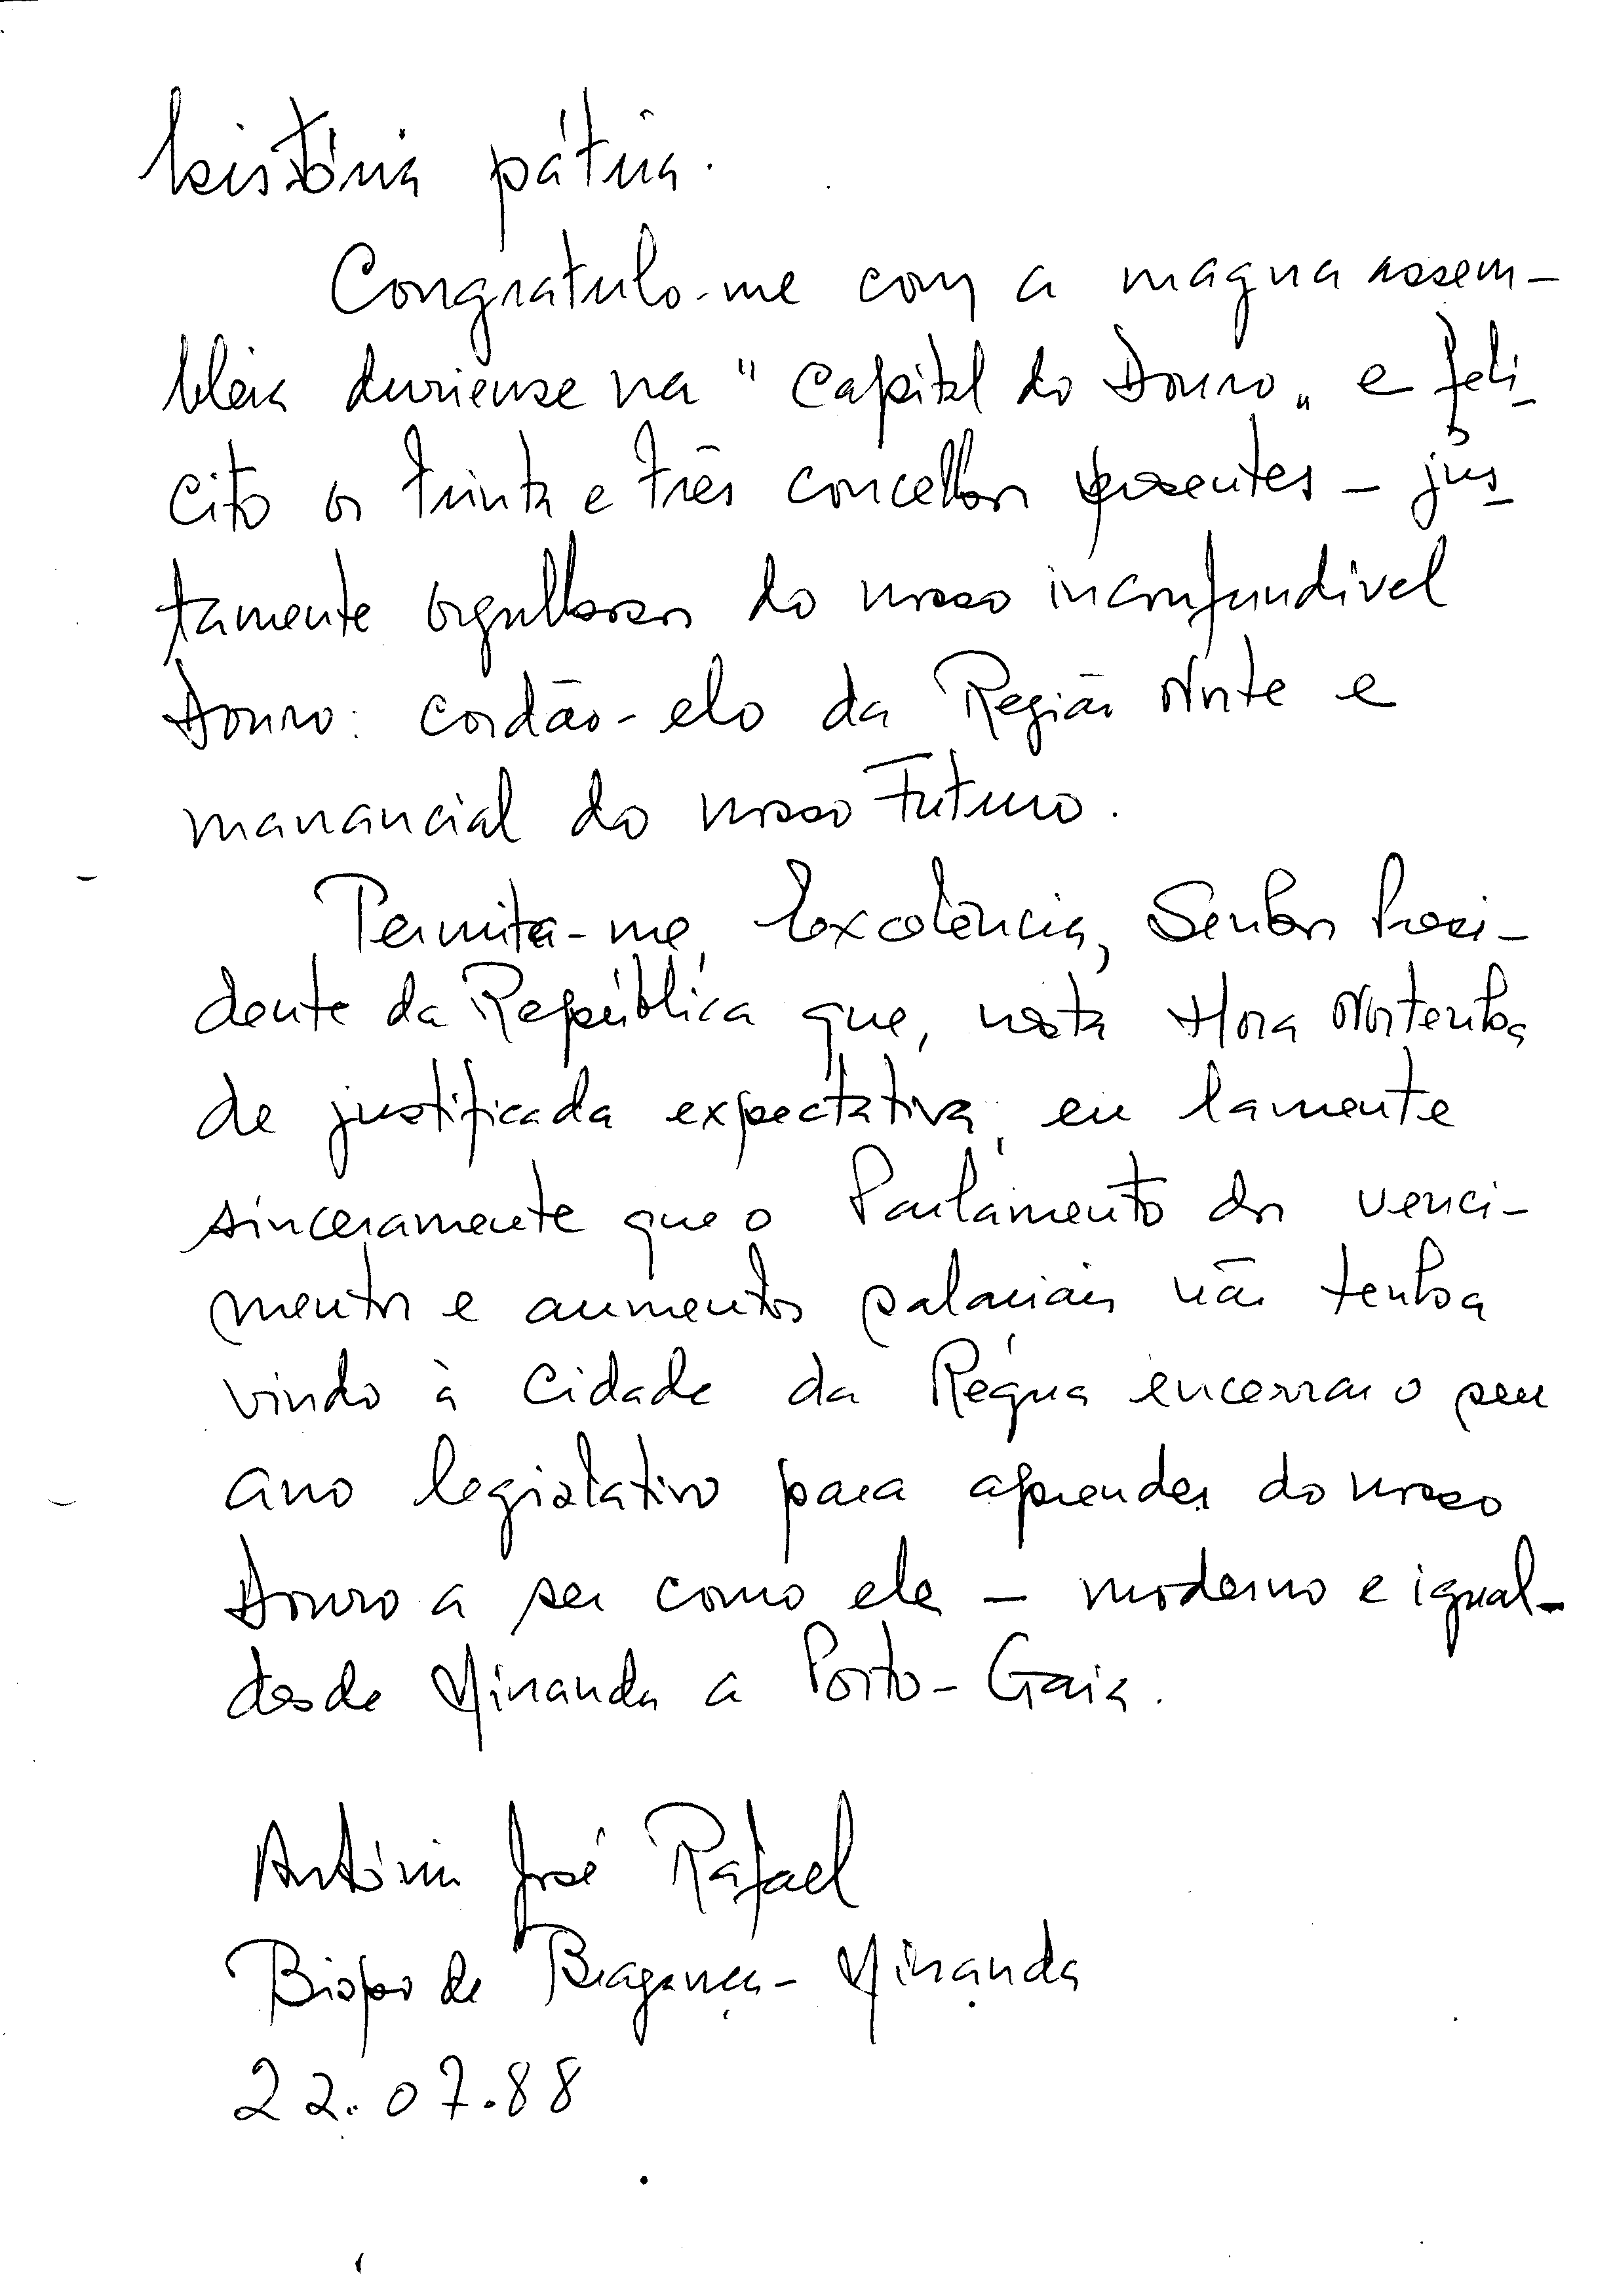 história pátria.
Congratulo-me com a magna assem-
bleia duriense na "Capital do Douro" e feli-
cito os trinta e três concelhos presentes - jus-
tamente orgulhosos do nosso inconfundível
Douro: cordão-elo da Região Norte e
manancial do nosso Futuro.
Permita-me, Excelência, Senhor Presi-
dente da República que, nesta Hora Nortenha
de justificada expectativa, eu lamente
sinceramente que o Parlamento dos venci-
mentos e aumentos salariais não tenha
vindo à Cidade da Régua encerrar o seu
ano legislativo para aprender do nosso
Douro a ser como ele - moderno e igual -
desde Miranda a Porto-Gaia.
António José Rafael
Bispo de Bragança-Miranda
22.07.88